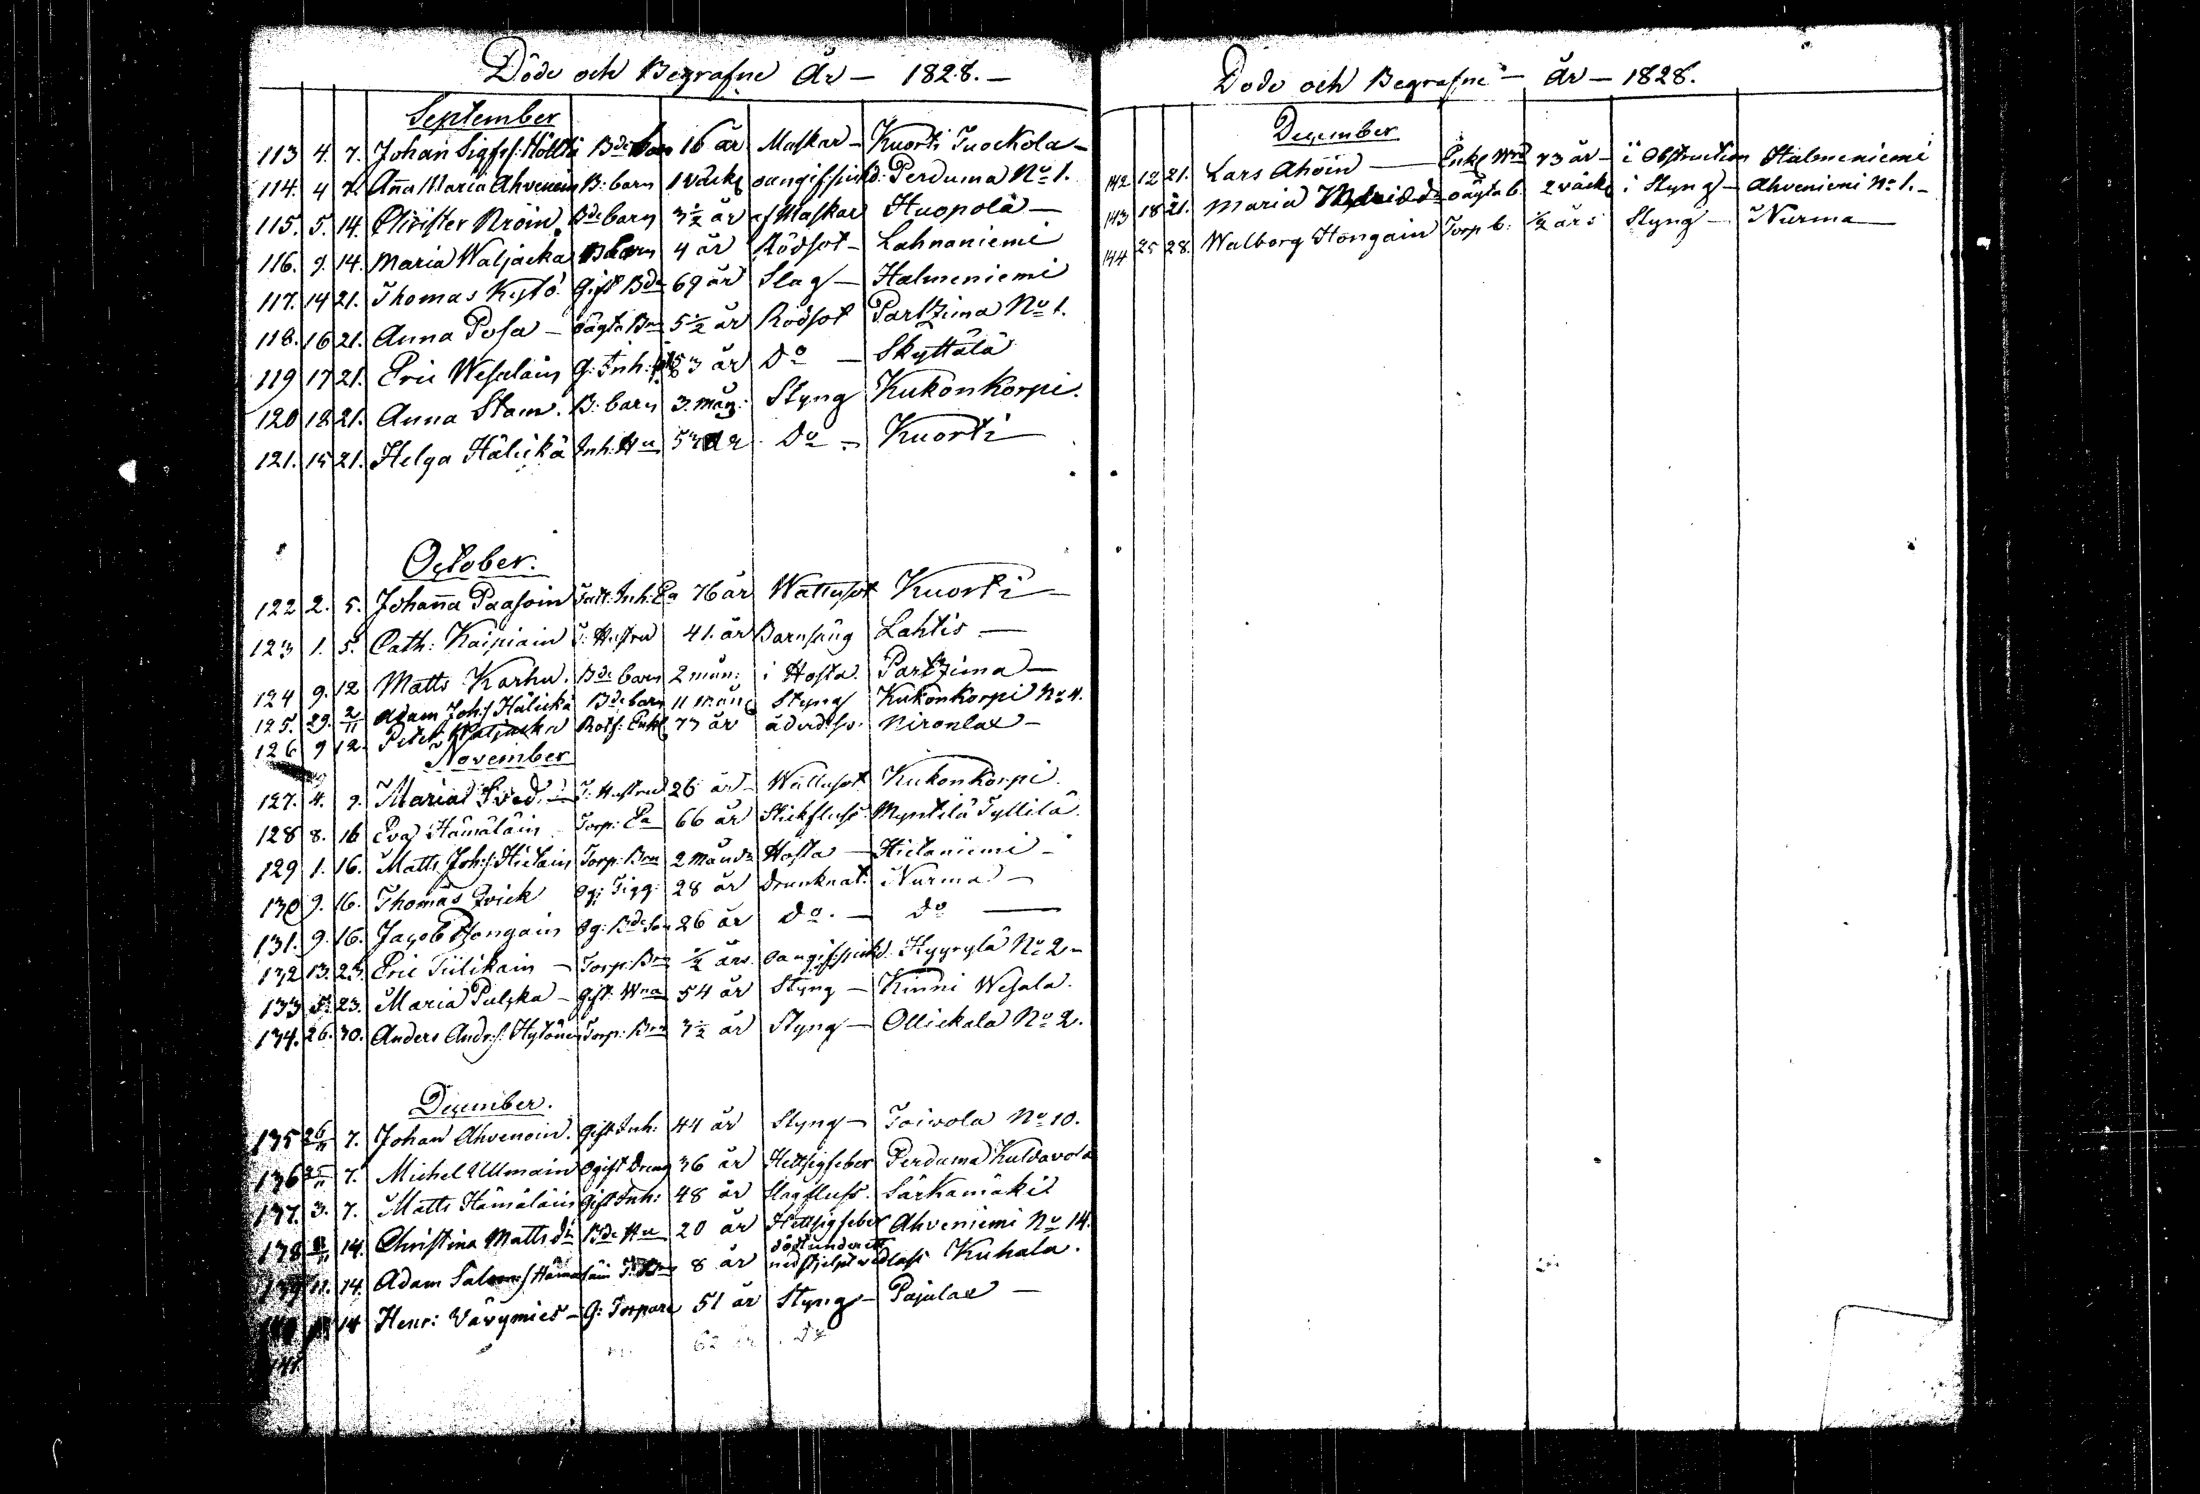 Döde och Begrafne År — 1828. —
September
113 4. 7. Johan Sigfs: Höltt Bde 16 år Maskar — Kuorti Tuockola —
114. 4 7. Anna Maria Ahvenein B: barn 1 väck oangif: sjukd: Perduma No 1.
115. 5. 14. Christer Kröin Bde barn 3½ år af Maskar Huopola —
116. 9. 14. Maria Waljacka B barn 4 år Rödsot — Lahnaniemi
117. 14 21. Thomas Kylö. Gift Bde 69 år Slag — Halmeniemi
118. 16 21. Anna Posa — oägta Brn 5½ år Rödsot Partzima No 1.
119 17 21. Eric Wesalain G: Inh: 53 år Do — Skyttälä
120 18 21. Anna Stam. B: barn 3. mån: Styng Kukonkorpi.
121. 15 21. Helga Hälickä Inh: Hu 53 år Do — Kuorti
October.
122 2. 5. Johanna Paasoin Fatt: Inh: Ea 76 år Wattusot Kuorti —
123 1. 5. Cath: Kaipiain T: Hustru 41. år Barnsäng Lahtis —
124 9. 12 Matts Karhu. Bde barn 2 mån: i Hosta. Partzima —
125. 29. 2/11 Adam Joh:s Hälickä Bde barn 11 mån Styng Kukonkorpi No 4.
126 9 12. Peter Waljacka Rotf: Enkl 73 år åderd: so: Nironlax —
November
127. 4. 9. Maria Sved. — T: Hustru 26 år — Wattusot Kukonkorpi.
128 8. 16 Eva Hämäläin Torp: Ea 66 år Stickfluss: Myntilä Tyllilä.
129 1. 16. Matts Joh:s Hietain Torp: Brn 2 månd: Hosta — Hietaniemi —
130 9. 16. Thomas Qvick Og: Tigg: 28 år Drunknat. Nurma —
131. 9. 16. Jacob Hongain Og: Bde Son 26 år Do. — Do —
132 13. 23. Eric Tiilikain — Torp: Brn ½ års. oangif: sjukd. Kyyrylä No 2 —
133 23. Maria Pulska — Gift. Wna 54 år Styng — Kinni Wesala.
134. 26. 30. Anders Andr:s Hylöinen Torp: Brn 3½ år Styng — Ollickala No 2.
December.
135 26/11 7. Johan Ahvenoin. Gift Inh: 44 år Styng — Toivola No 10.
136 7. Michel Ullmain Ogift Dreng 36 år Hettsigfeber Perduma Kuldavola
137. 3. 7. Matts Hämäläin Gift Inh: 48 år Slagfluss. Särkamäki
138 14. Christina Matts dr Bde Hu 20 år Hettsigfeber Ahveniemi No 14.
139 11. 14. Adam Salom:s Hämäläin T: Brn 8 år död under ett nedstjelpt vedlass Kuhala.
140 14 Henr: Värymies — G: Torpare 51 år Styng — Pajulax —
141. 62 år Do
Döde och Begrafne — År — 1828.
December
142 12 21. Lars Ahoin — Enkl Wrd 73 år — i Obstruction Halmeniemi
143 18 21. Maria oägta b. 2 väck i Styng — Ahveniemi No 1. —
144 25 28. Walborg Hongain Torp b: ½ års Styng — Nurma —